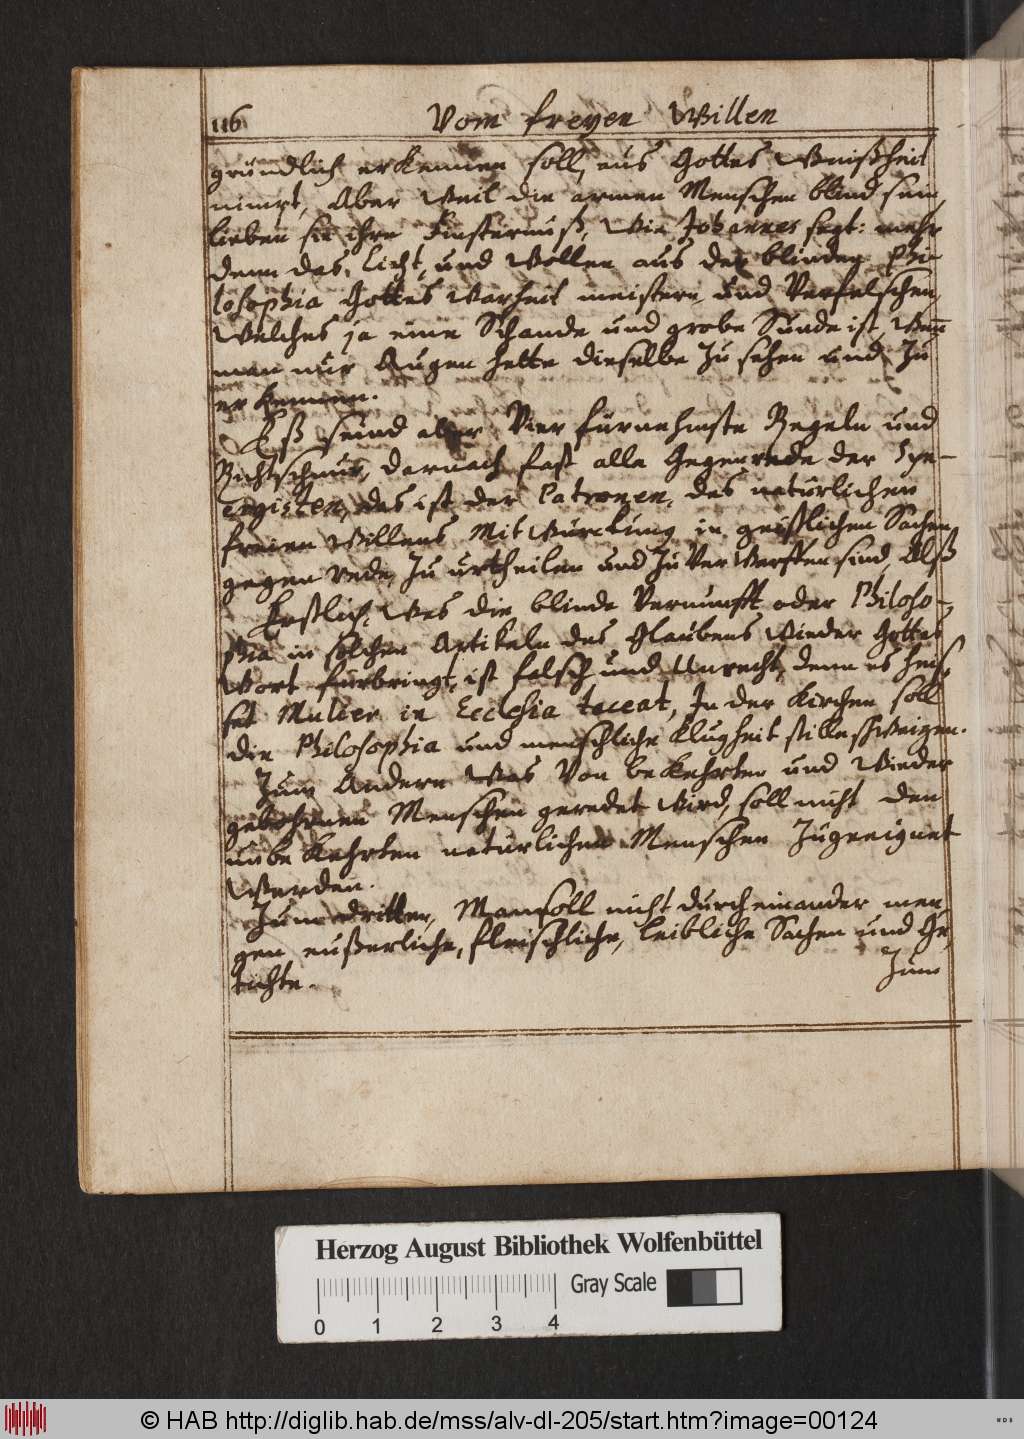 116 Vom freyen Willen
gründlich erkennen soll, aus Gottes Weißheit
nimpt, Aber weil die armen Menschen blind sein,
lieben sie ihre Finsternuß, wie Johannes sagt: mehr
denn das Licht, und wollen aus der blinden Phi-
losophia Gottes Warheit meistern und Verfelschen,
Welches ja eine Schande und grobe Sünde ist, Wenn
man nur Augen hette dieselbe zu sehen und zu
erkennen.
Eß seind aber Vier fürnehmste Regeln und
Richtschnur, darnach fast alle Gegenrede der Syn-
ergisten, das ist der Patronen, des natürlichen
freien Willens Mitwürckung in geistlichen Sachen
gegen rede, zu urtheilen und zu Verwerffen sind, Alß
Erstlich, Was die blinde Vernunfft oder Philoso-
phia in solchen Artikeln des Glaubens wieder Gottes
Wort fürbringt, ist falsch und Unrecht, denn es heis-
set Mulier in Ecclesia taceat, In der Kirchen soll
die Philosophia und menschliche Klugheit stilleschweigen.
Zum Andern Was Von bekehrten und Wieder
gebohrnen Menschen geredet wird, soll nicht den
unbekehrten natürlichen Menschen zugeeignet
Werden.
Zum dritten, Man soll nicht durcheinander men
gen eußerliche, fleischliche, leibliche Sachen und Ge
richte.
Zum
Herzog August Bibliothek Wolfenbüttel
Gray Scale
0 1 2 3 4
© HAB http://diglib.hab.de/mss/alv-dl-205/start.htm?image=00124